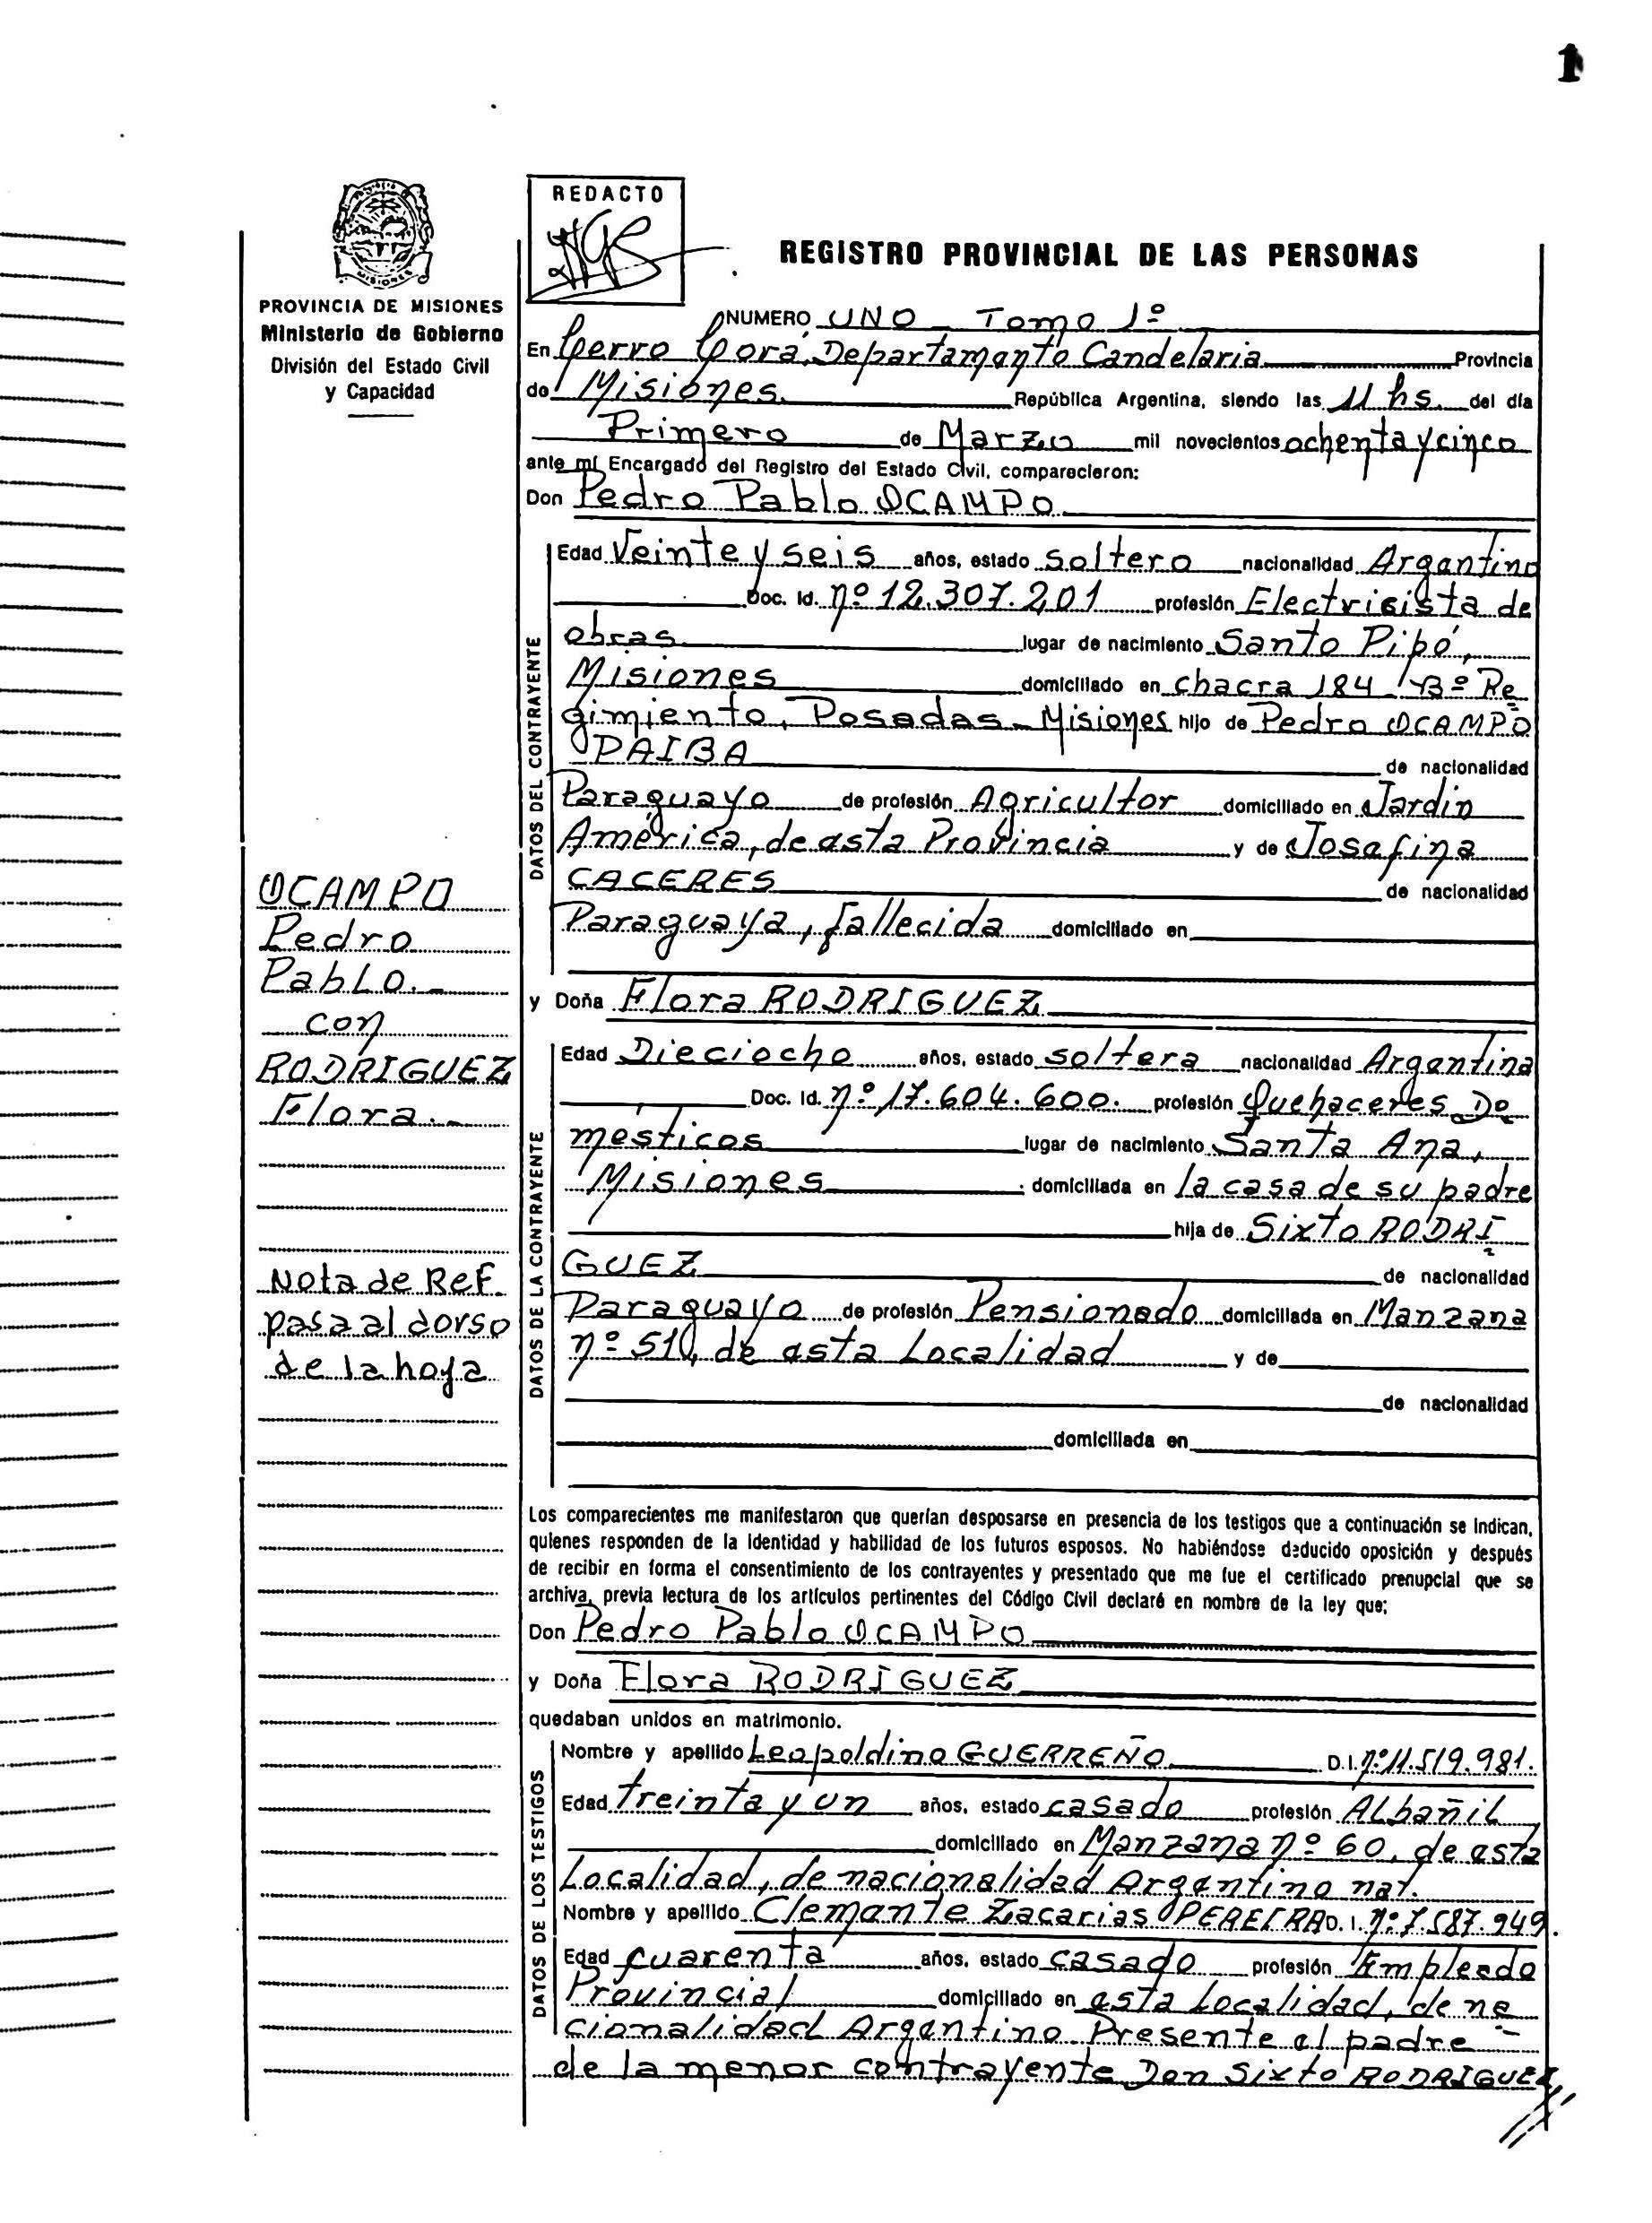 1
REDACTO
REGISTRO PROVINCIAL DE LAS PERSONAS
PROVINCIA DE MISIONES
Ministerio de Gobierno
División del Estado Civil
y Capacidad
NUMERO UNO - Tomo 1º
En Cerro Corá, Departamento Candelaria Provincia
de Misiones. República Argentina, siendo las 11 hs. del día
Primero de Marzo mil novecientos ochenta y cinco
ante mí Encargado del Registro del Estado Civil, comparecieron:
Don Pedro Pablo OCAMPO
DATOS DEL CONTRAYENTE
Edad Veinte y seis años, estado soltero nacionalidad Argentino
Doc. Id. nº 12.307.201 profesión Electricista de
obras lugar de nacimiento Santo Pipó,
Misiones domiciliado en chacra 184 Bº Re
gimiento, Posadas - Misiones hijo de Pedro OCAMPO
PAIBA de nacionalidad
Paraguayo de profesión Agricultor domiciliado en Jardin
América, de esta Provincia y de Josefina
CACERES de nacionalidad
Paraguaya, fallecida domiciliado en
OCAMPO
Pedro
Pablo.-
con
RODRIGUEZ
Flora.-
Nota de Ref.
pasa al dorso
de la hoja
y Doña Flora RODRIGUEZ
DATOS DE LA CONTRAYENTE
Edad Dieciocho años, estado soltera nacionalidad Argentina
Doc. Id. nº 17.604.600. profesión Quehaceres Do
mesticos lugar de nacimiento Santa Ana,
Misiones domiciliada en la casa de su padre
hija de Sixto RODRI
GUEZ de nacionalidad
Paraguayo de profesión Pensionado domiciliada en Manzana
nº de esta Localidad y de
de nacionalidad
domiciliada en
Los comparecientes me manifestaron que querían desposarse en presencia de los testigos que a continuación se indican,
quienes responden de la identidad y habilidad de los futuros esposos. No habiéndose deducido oposición y después
de recibir en forma el consentimiento de los contrayentes y presentado que me fue el certificado prenupcial que se
archiva, previa lectura de los artículos pertinentes del Código Civil declaré en nombre de la ley que;
Don Pedro Pablo OCAMPO
y Doña Flora RODRIGUEZ
quedaban unidos en matrimonio.
DATOS DE LOS TESTIGOS
Nombre y apellido Leopoldino GUERREÑO D.I. nº 11.519.981.
Edad treinta y un años, estado casado profesión Albañil
domiciliado en Manzana nº 60, de esta
Localidad, de nacionalidad Argentino nat.
Nombre y apellido Clemente Zacarias PEREIRA D. I. nº 7.587.949.
Edad cuarenta años, estado casado profesión Empleado
Provincial domiciliado en esta Localidad, de na
cionalidad Argentino. Presente el padre
de la menor contrayente Don Sixto RODRIGUEZ//